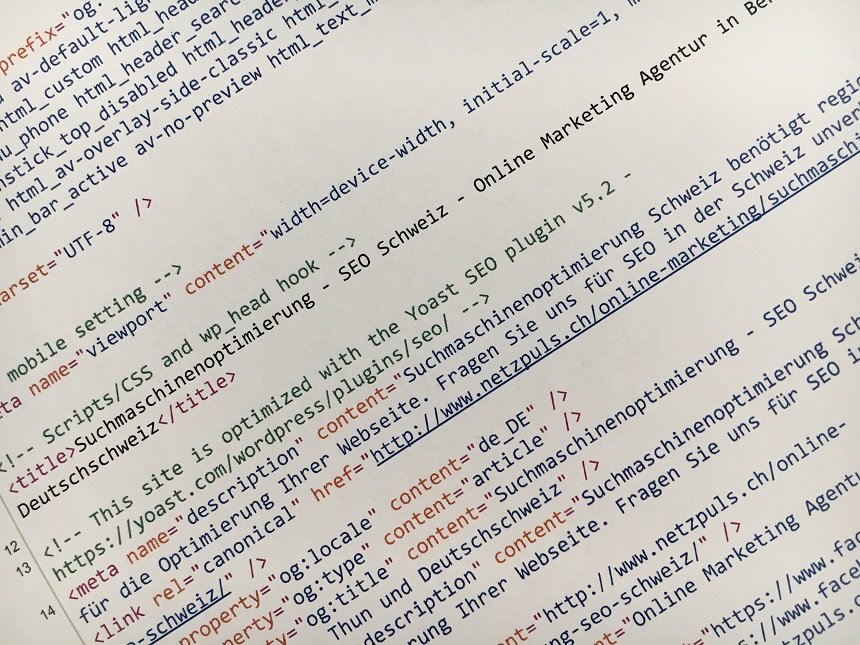 prefix="og:
av-default-lig
html_custom html_head
u_phone html_header_sear
nstick_top_disabled html_heade
html_av-overlay-side-classic html_
min_bar_active av-no-preview html_text_m
arset="UTF-8" />
mobile setting -->
eta name="viewport" content="width=device-width, initial-scale=1,
<!-- Scripts/CSS and wp_head hook -->
<title>Suchmaschinenoptimierung - SEO Schweiz - Online Marketing Agentur in Ber
Deutschschweiz</title>
12 <!-- This site is optimized with the Yoast SEO plugin v5.2 -
https://yoast.com/wordpress/plugins/seo/ -->
13 <meta name="description" content="Suchmaschinenoptimierung Schweiz benötigt regi
für die Optimierung Ihrer Webseite. Fragen Sie uns für SEO in der Schweiz unver
14 <link rel="canonical" href="http://www.netzpuls.ch/online-marketing/suchmaschi
o-schweiz/" />
property="og:locale" content="de_DE" />
perty="og:type" content="article" />
rty="og:title" content="Suchmaschinenoptimierung - SEO Schwei
Thun und Deutschschweiz" />
description" content="Suchmaschinenoptimierung Sch
rung Ihrer Webseite. Fragen Sie uns für SEO i
ent="http://www.netzpuls.ch/online-
ng-seo-schweiz/" />
nt="Online Marketing Agentu
"https://www.fac
s://www.faceb
tzpuls.c